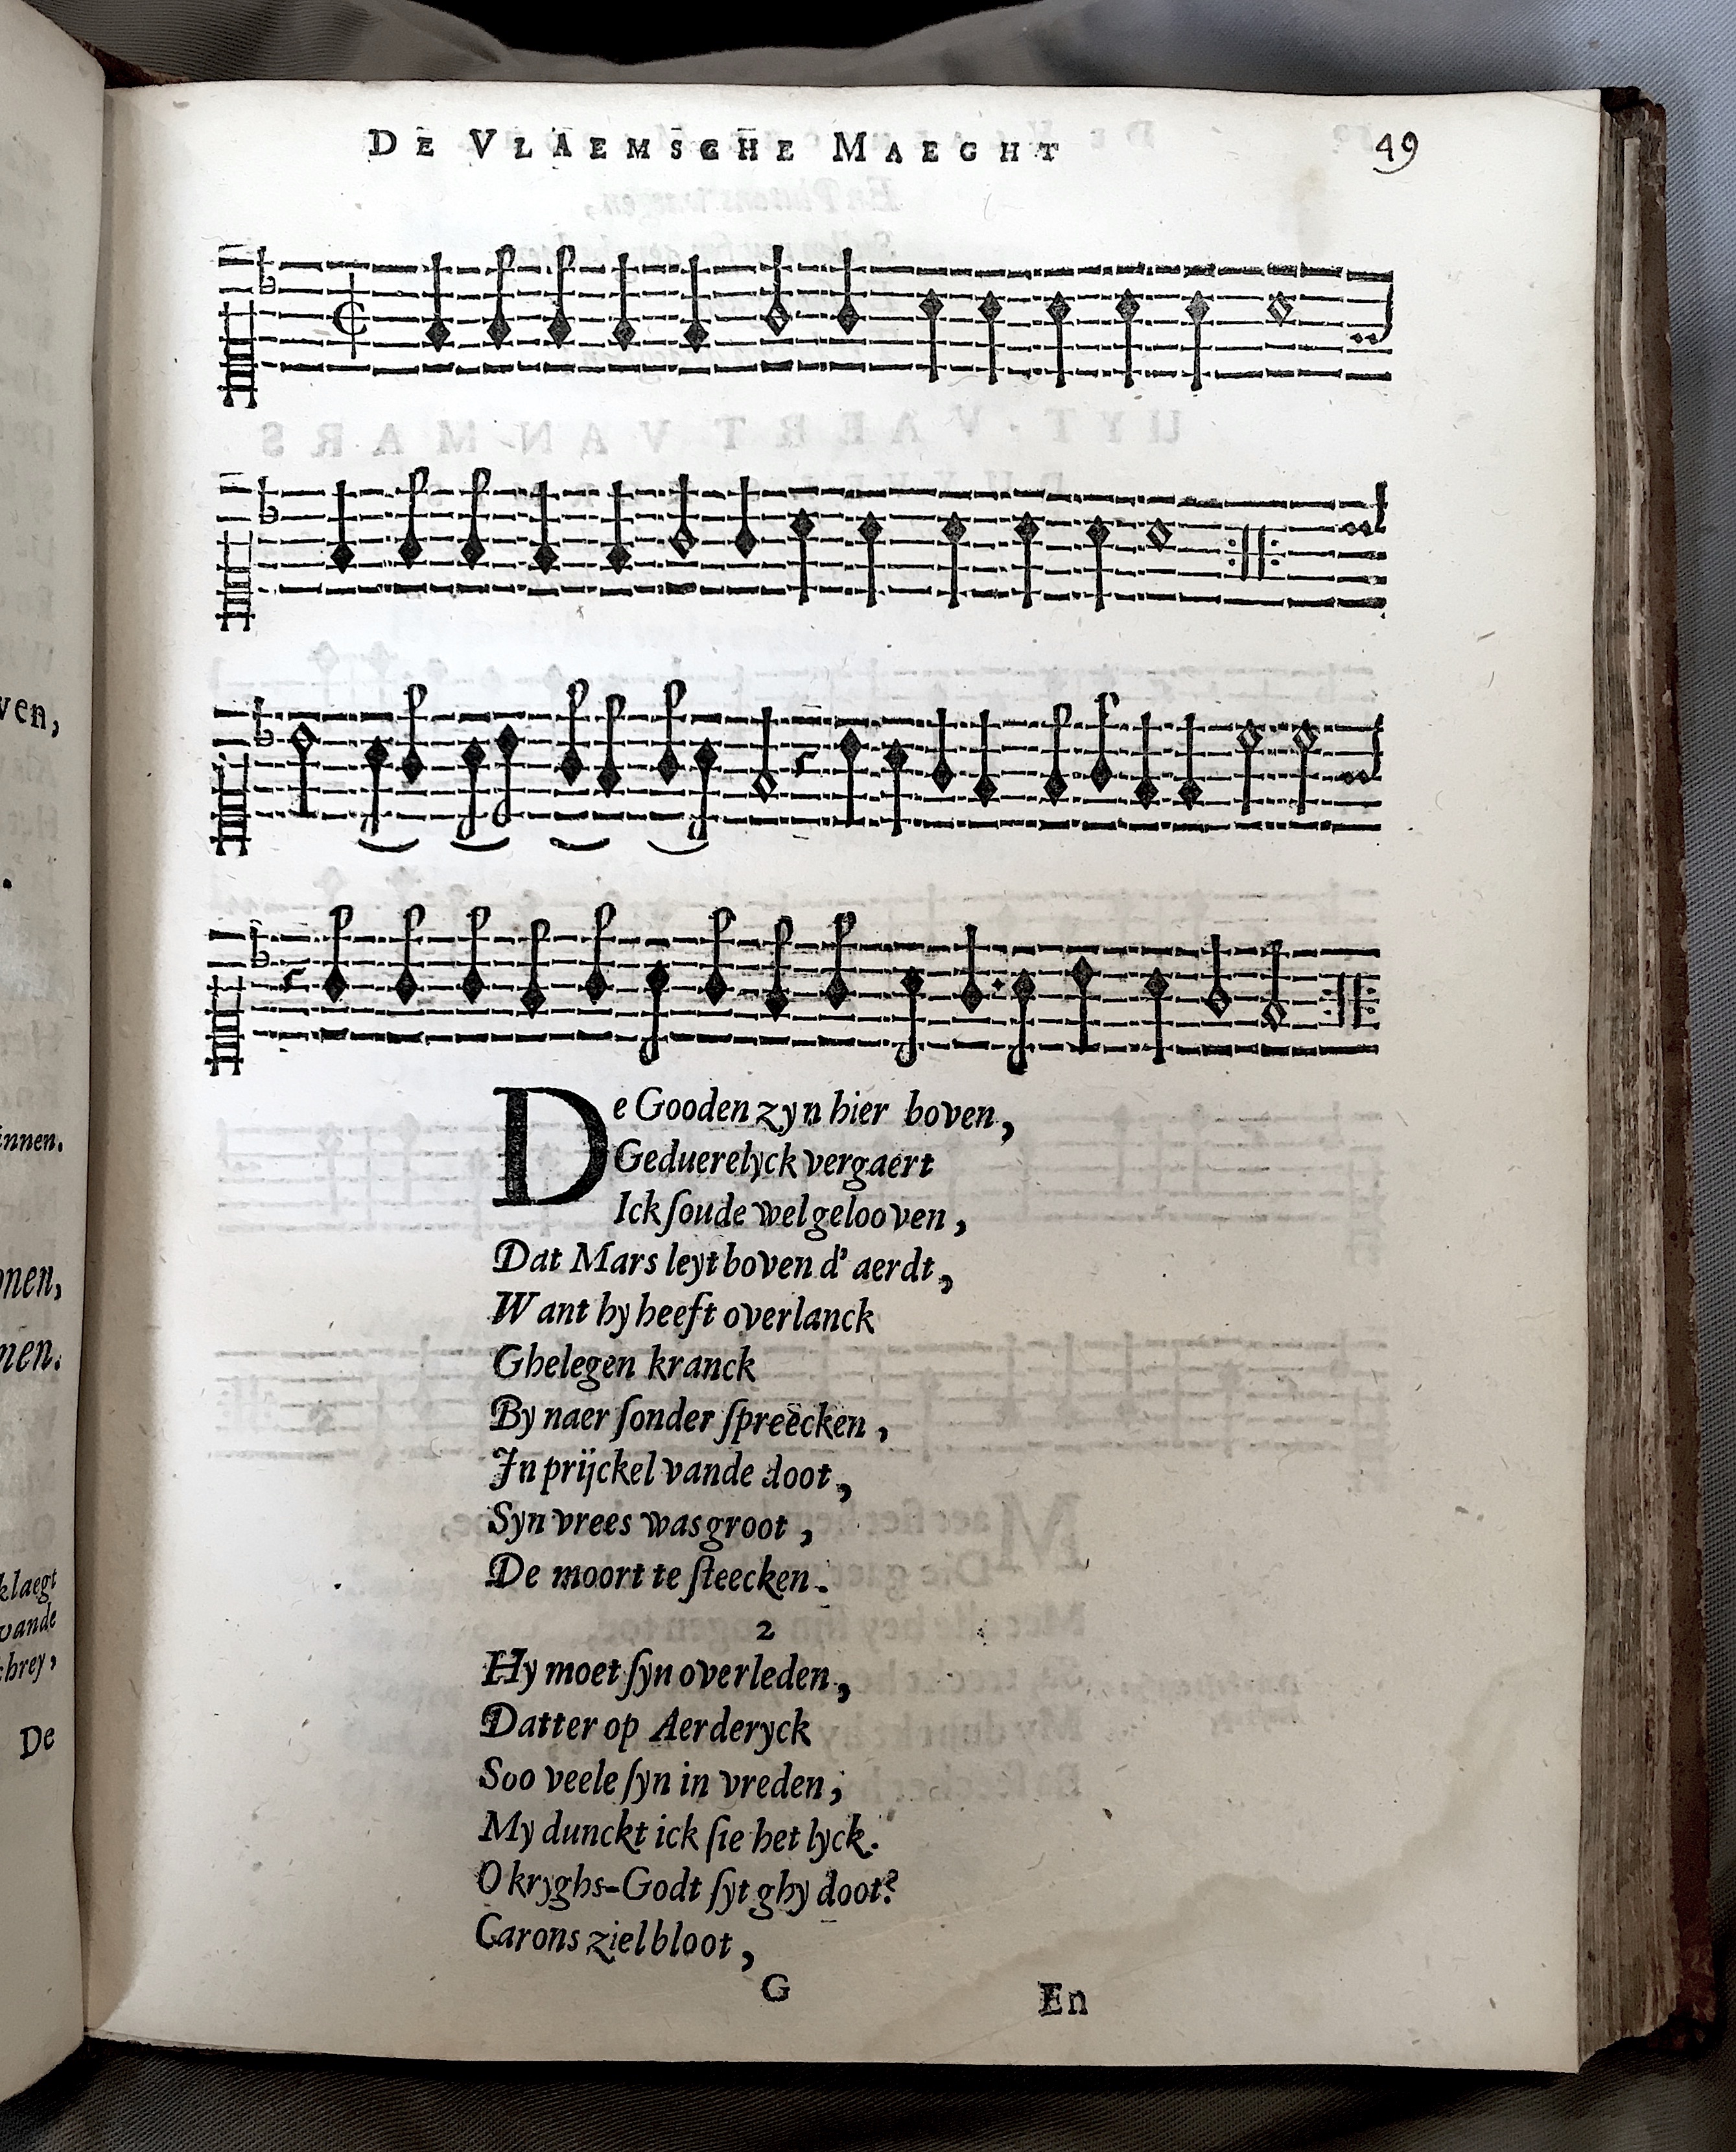 DE VLAEMSCHE MAEGHT 49
De Gooden zyn hier boven,
Geduerelyck vergaert
Ick ſoude wel gelooven,
Dat Mars leyt boven d' aerdt,
Want hy heeft overlanck
Ghelegen kranck
By naer ſonder ſpreecken,
In prijckel vande doot,
Syn vrees was groot,
De moort te ſteecken.
2
Hy moet ſyn overleden,
Datter op Aerderyck
Soo veele ſyn in vreden;
My dunckt ick ſie het lyck.
O kryghs-Godt ſyt ghy doot?
Carons ziel bloot,
G En
ven,
innen.
onen,
nen.
klaegt
vande
chrey,
De